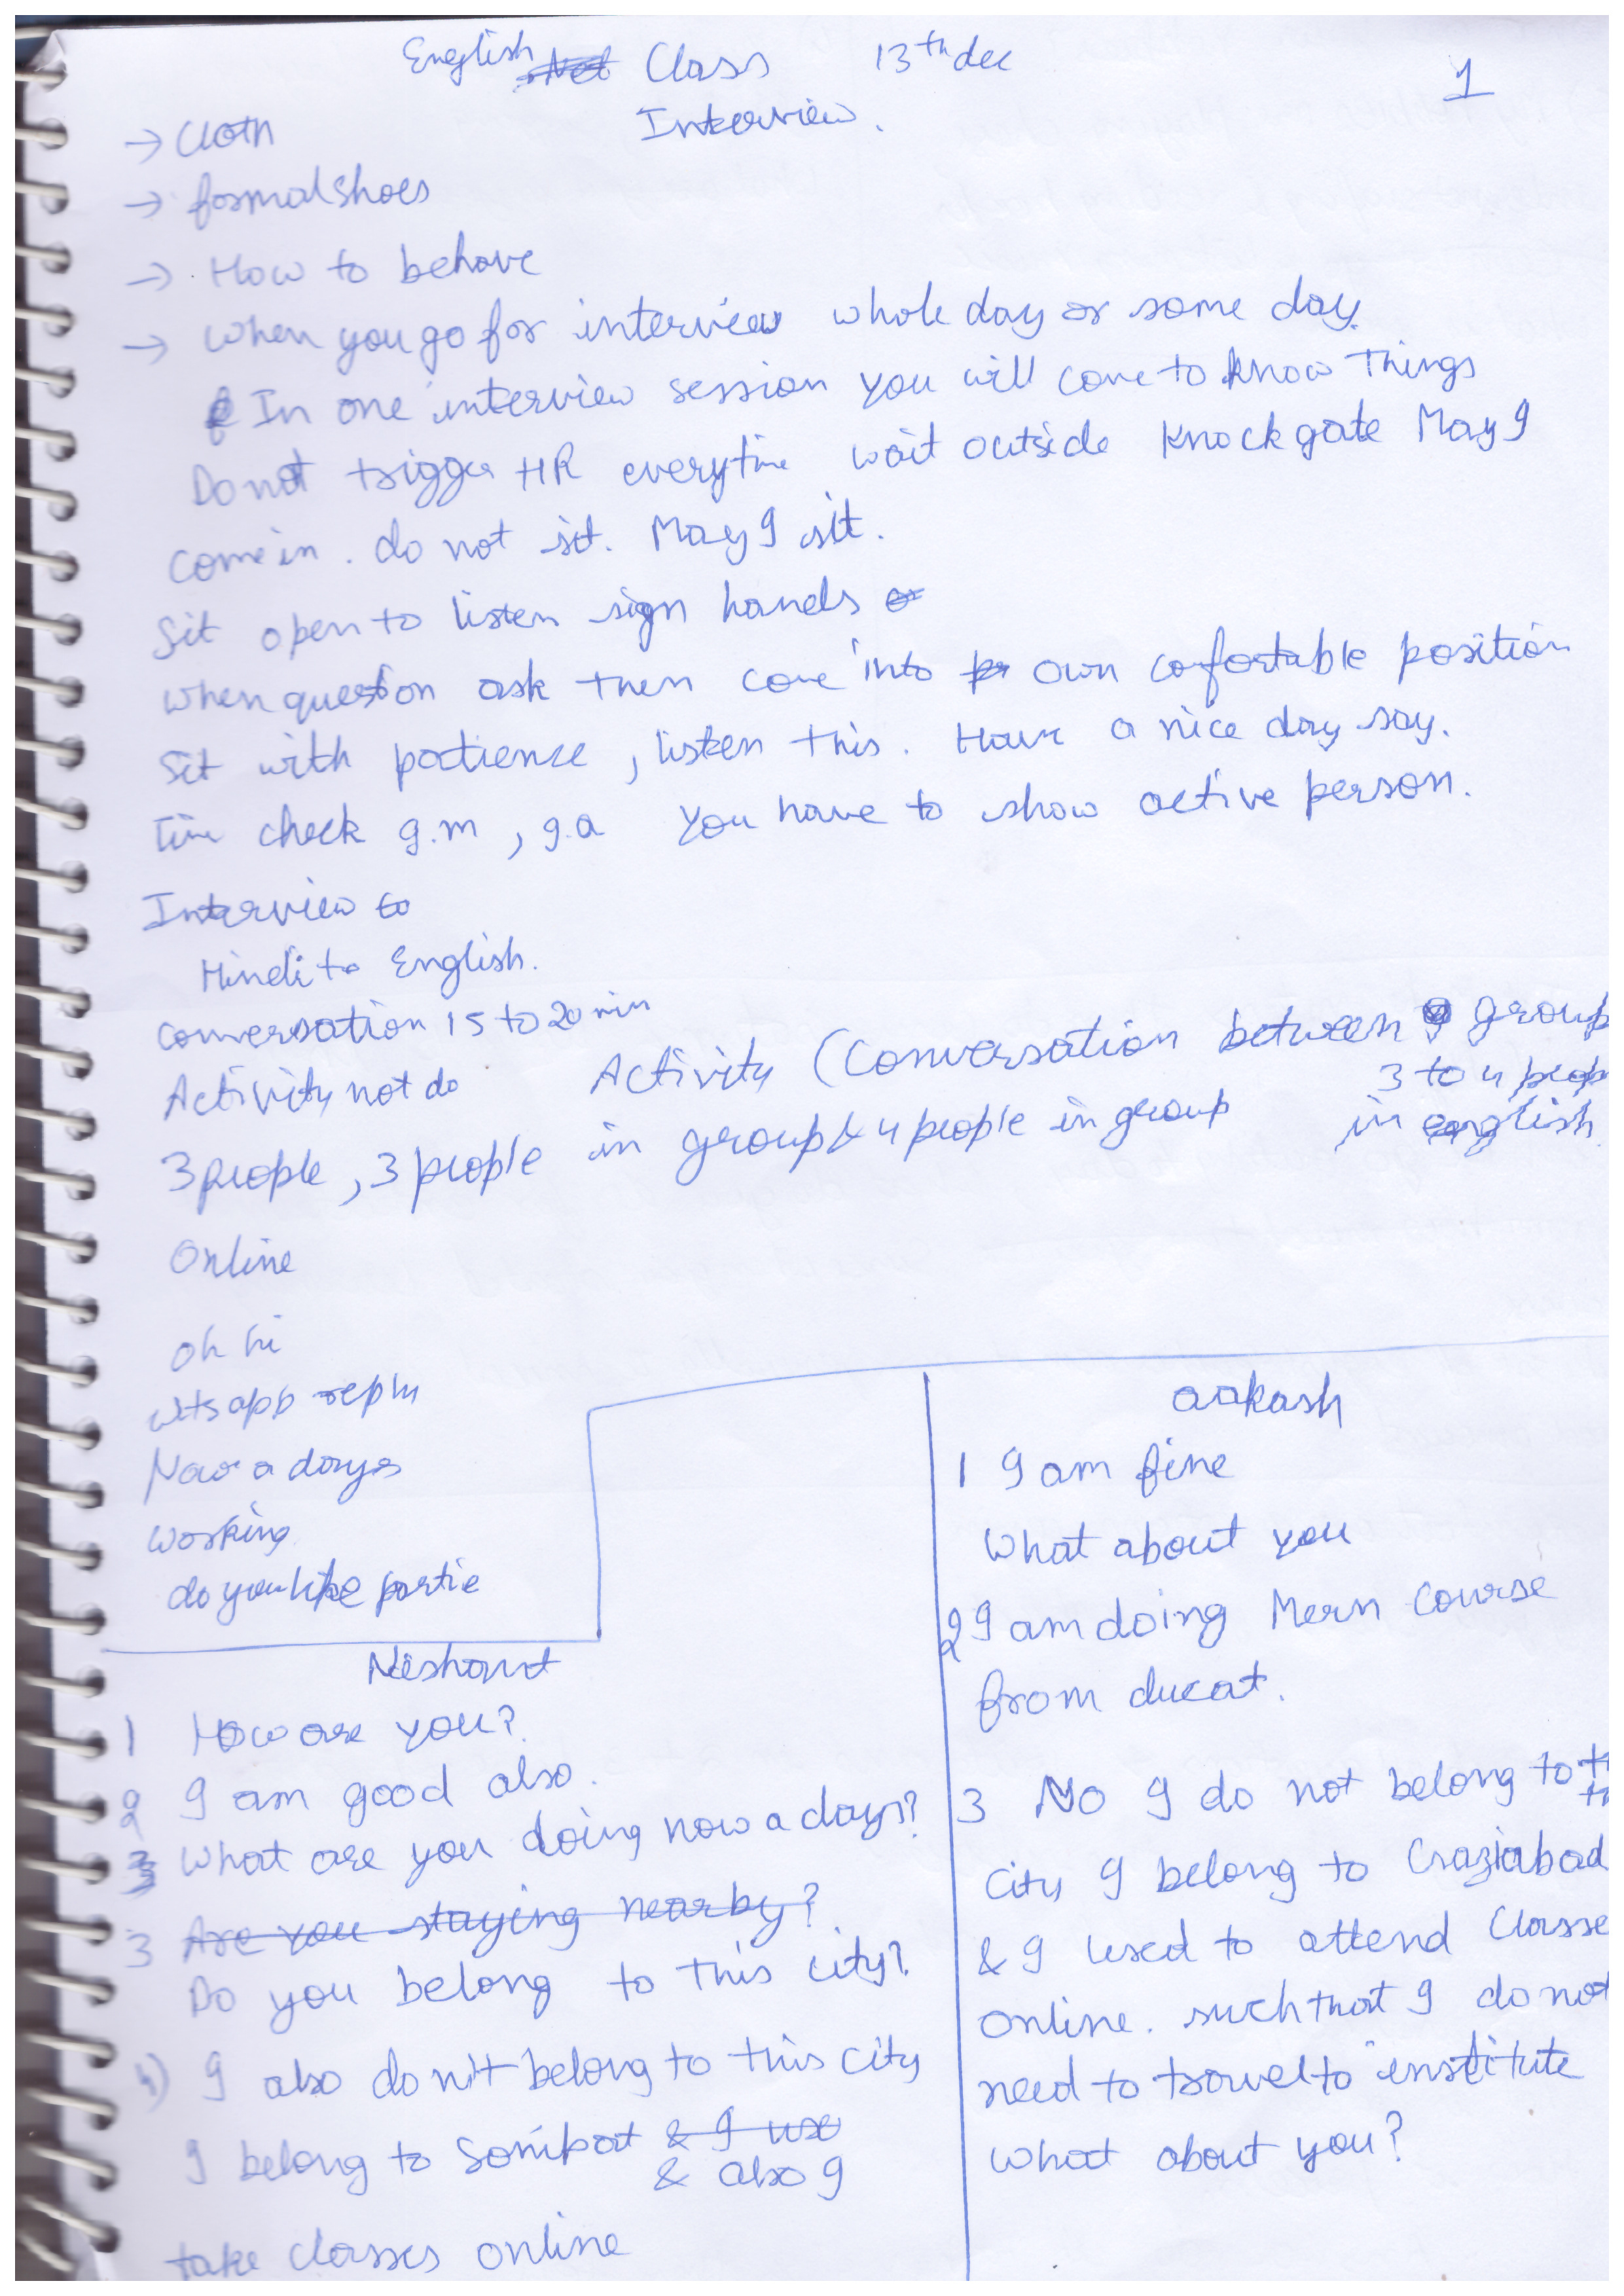 English Class 13th dec
1
Interview.
→ Cloth
→ formal shoes
→ How to behave
→ When you go for interview whole day or some day.
In one interview session you will come to know Things
Do not trigger HR everytime wait outside knock gate May I
come in. do not sit. May I sit.
Sit open to listen sign hands or
when question ask then come into own cofortable position
Sit with patience, listen this. Have a nice day say.
Time check g.m, g.a You have to show active person.
Interview to
Hindi to English.
conversation 15 to 20 min
Activity not do Activity (Conversation between group
3 to 4 peop
3 people, 3 people in group & 4 people in group in english.
Online
oh hi
wtsapp reply
Now a days
working
do you like partie
Nishant
1 How are you?
2 I am good also.
3 What are you doing now a days?
3 Are you staying nearby?
Do you belong to this city?
4) I also don't belong to this city
I belong to Sonipat & I use
& also I
take classes online
aakash
1 I am fine
What about you
2 I am doing Mern Course
from ducat.
3 No I do not belong to
city I belong to Graziabad
& I used to attend Classe
online. such that I do not
need to travel to institute
What about you?